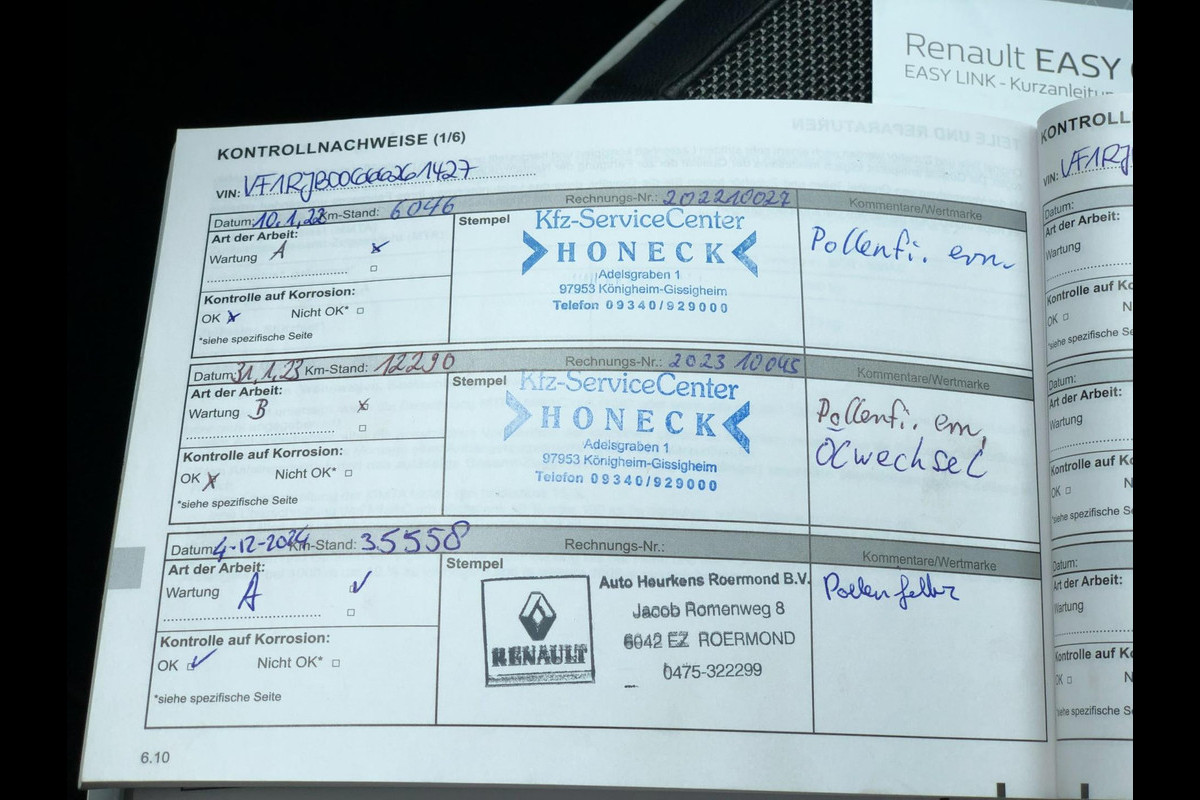 Renault EASY
EASY LINK - Kurzanleitun
TEILE UND REPARATUREN
KONTROLLNACHWEISE (1/6)
VIN:
Datum: 10,1,22 Km-Stand: 6046 Rechnungs-Nr.: 202210027 Kommentare/Wertmarke
Art der Arbeit:
Wartung A
Kontrolle auf Korrosion:
OK Nicht OK*
*siehe spezifische Seite
Stempel
Kfz-ServiceCenter
HONECK
Adelsgraben 1
97953 Königheim-Gissigheim
Telefon 09340/929000
Pollenfi. ern.
Datum: 31,1,23 Km-Stand: 12290 Rechnungs-Nr.: 202310045 Kommentare/Wertmarke
Art der Arbeit:
Wartung B
Kontrolle auf Korrosion:
OK Nicht OK*
*siehe spezifische Seite
Stempel
Kfz-ServiceCenter
HONECK
Adelsgraben 1
97953 Königheim-Gissigheim
Telefon 09340/929000
Pollenfi. ern,
Ölwechsel
Datum: 4-12-2024 Km-Stand: 35558 Rechnungs-Nr.: Kommentare/Wertmarke
Art der Arbeit:
Wartung A
Kontrolle auf Korrosion:
OK Nicht OK*
*siehe spezifische Seite
Stempel
RENAULT
Auto Heurkens Roermond B.V.
Jacob Romenweg 8
6042 EZ ROERMOND
0475-322299
6.10
KONTROLL
VIN: VF1RJ
Datum:
Art der Arbeit:
Wartung
Kontrolle auf Korro
OK N
*siehe spezifische Se
Datum:
Art der Arbeit:
Wartung
Kontrolle auf Korro
OK N
*siehe spezifische Se
Datum:
Art der Arbeit:
Wartung
Kontrolle auf Korro
OK N
*siehe spezifische Se